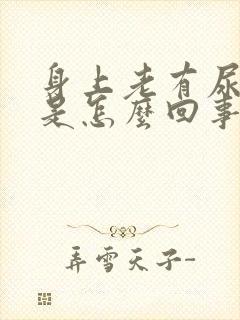 身上老有尿
是怎麼回事
弄雪天子-